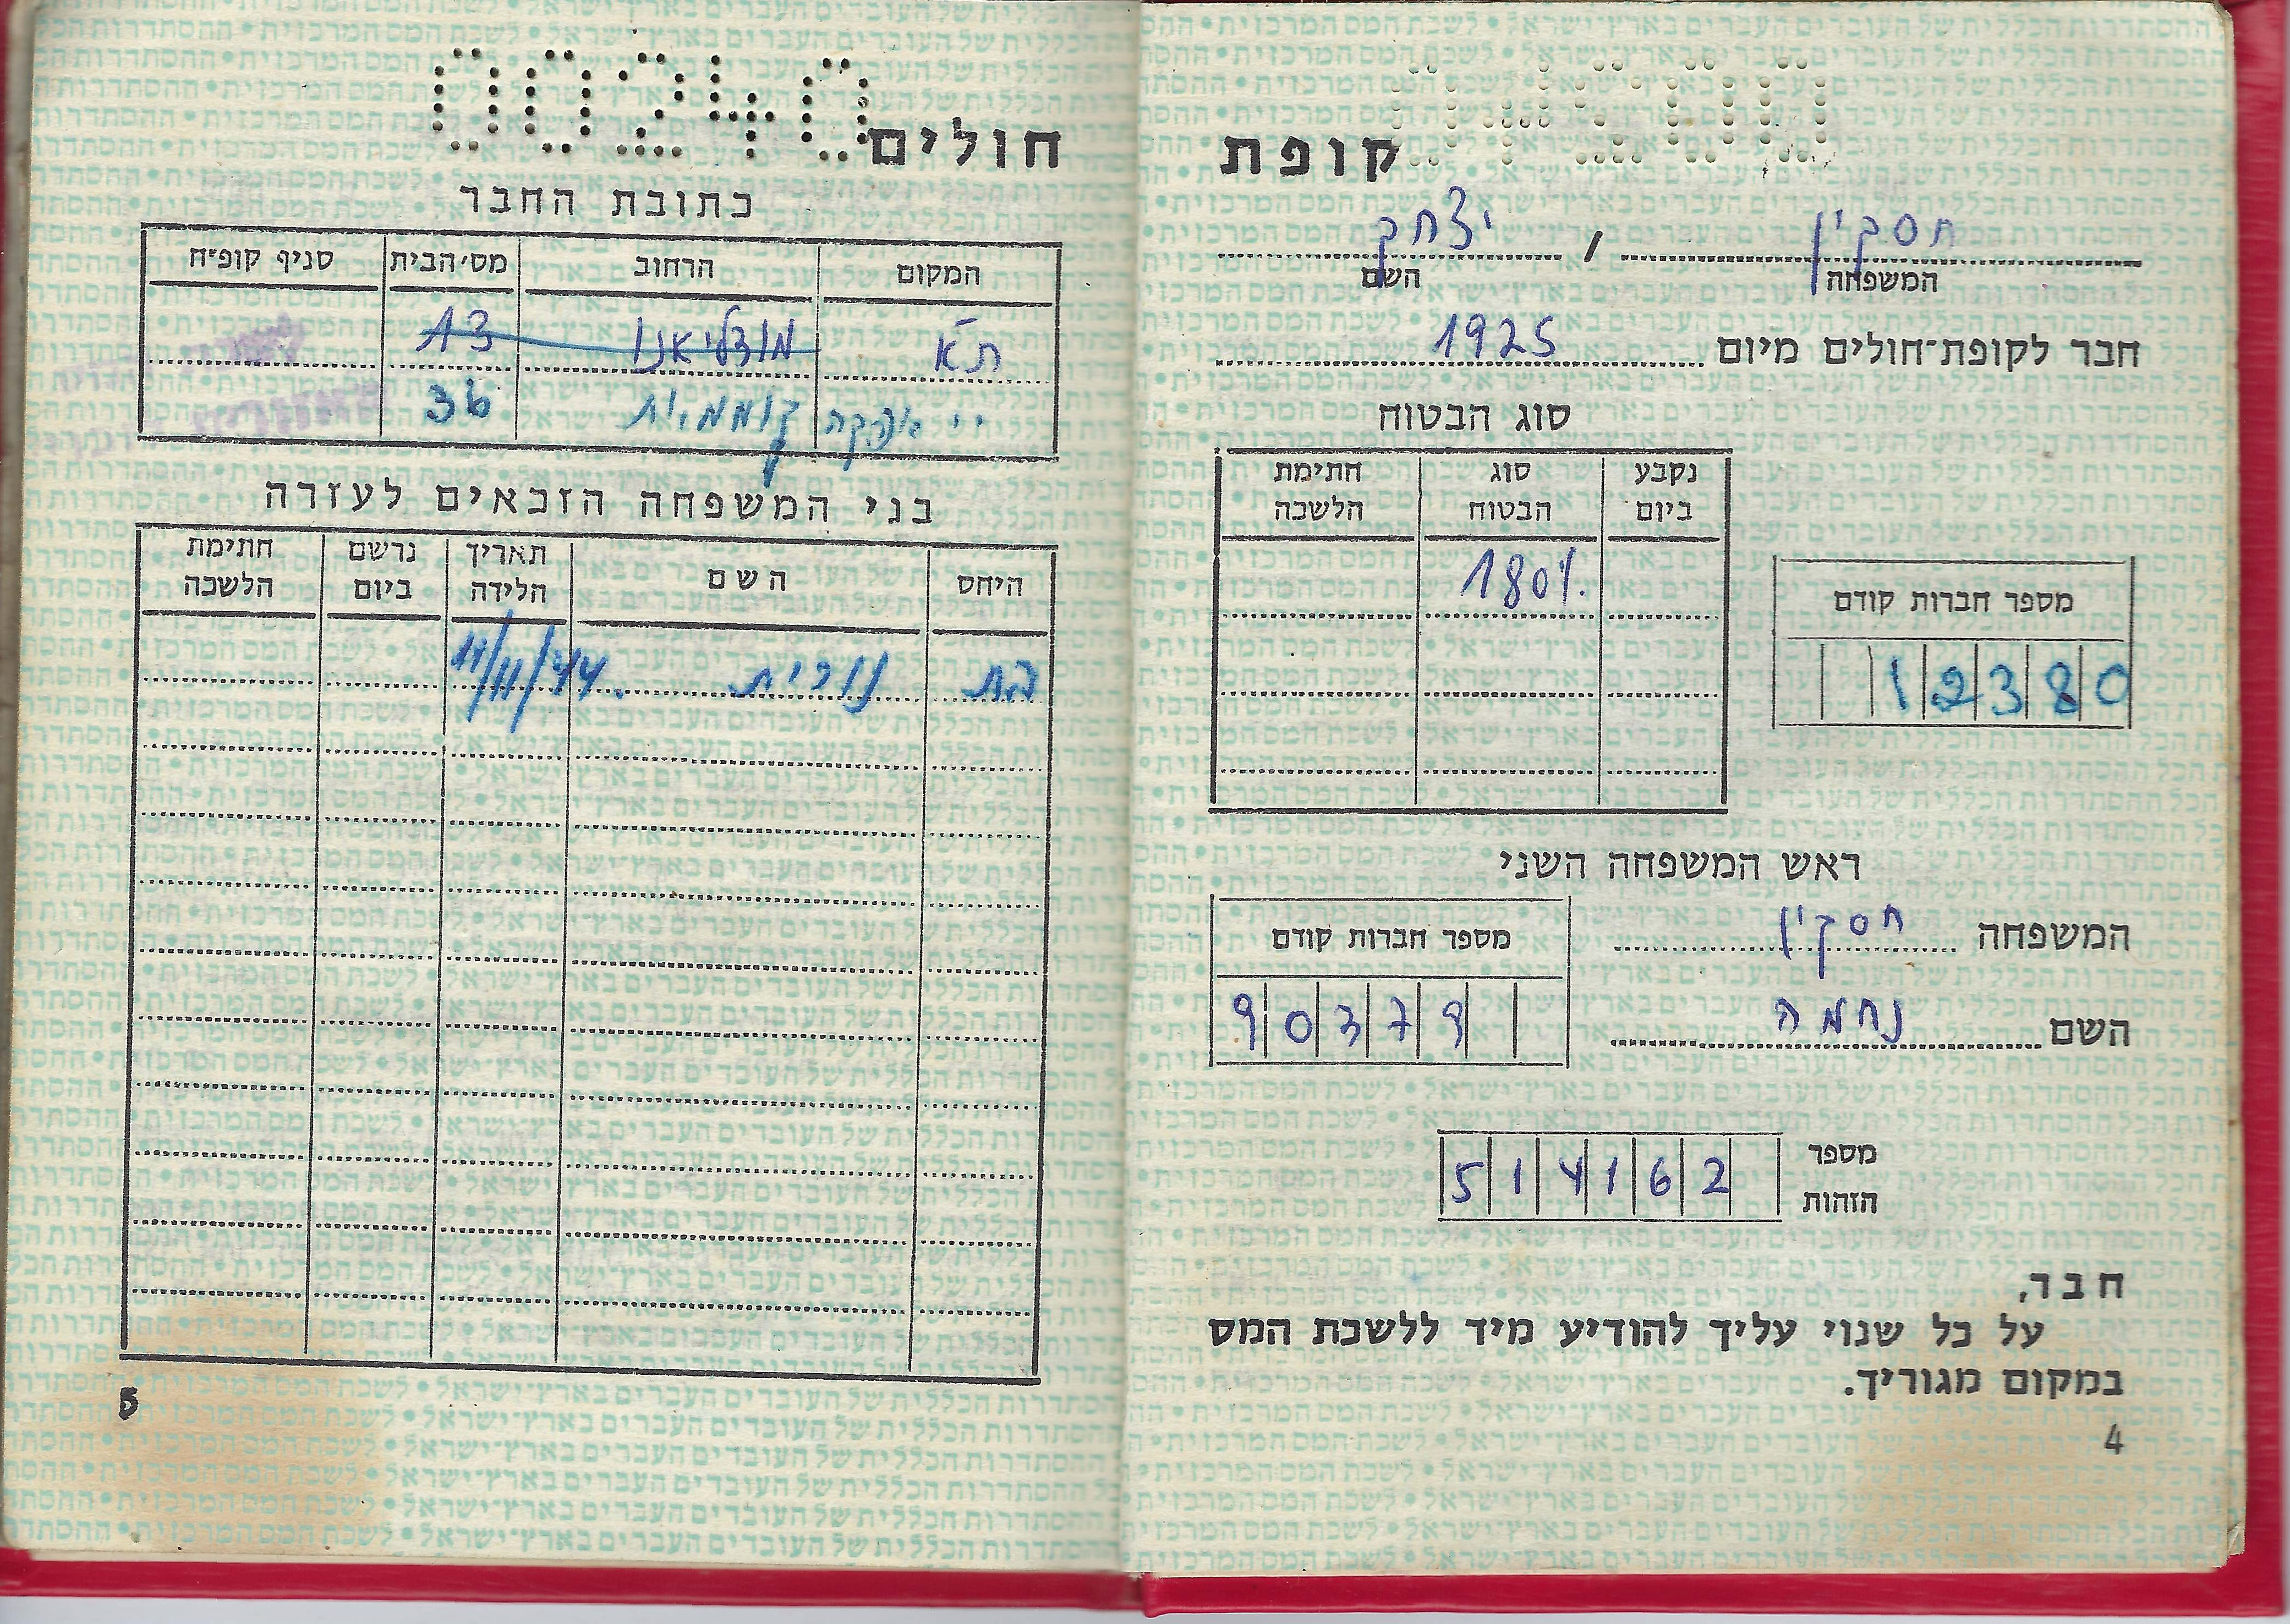 קופת חולים
00240
חסקין / יצחק
המשפחה השם
חבר לקופת־חולים מיום 1925
סוג הבטוח
נקבע ביום סוג הבטוח חתימת הלשכה
180%
מספר חברות קודם
12380
ראש המשפחה השני
המשפחה חסקין
השם נחמה
מספר חברות קודם
90379
מספר הזהות
514162
חבר,
על כל שנוי עליך להודיע מיד ללשכת המס
במקום מגוריך.
4
כתובת החבר
המקום הרחוב מס׳הבית סניף קופ״ח
ת״א מודליאנו 13
קוממיות 36
בני המשפחה הזכאים לעזרה
היחס השם תאריך הלידה נרשם ביום חתימת הלשכה
בת נורית
5